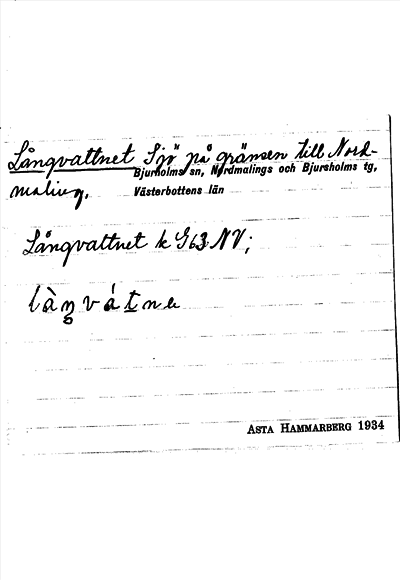 Långvattnet Sjö på gränsen till Nord-
Bjurholms sn, Nordmalings och Bjursholms tg,
maling.
Västerbottens län
Långvattnet k G63 NV;
Asta Hammarberg 1934